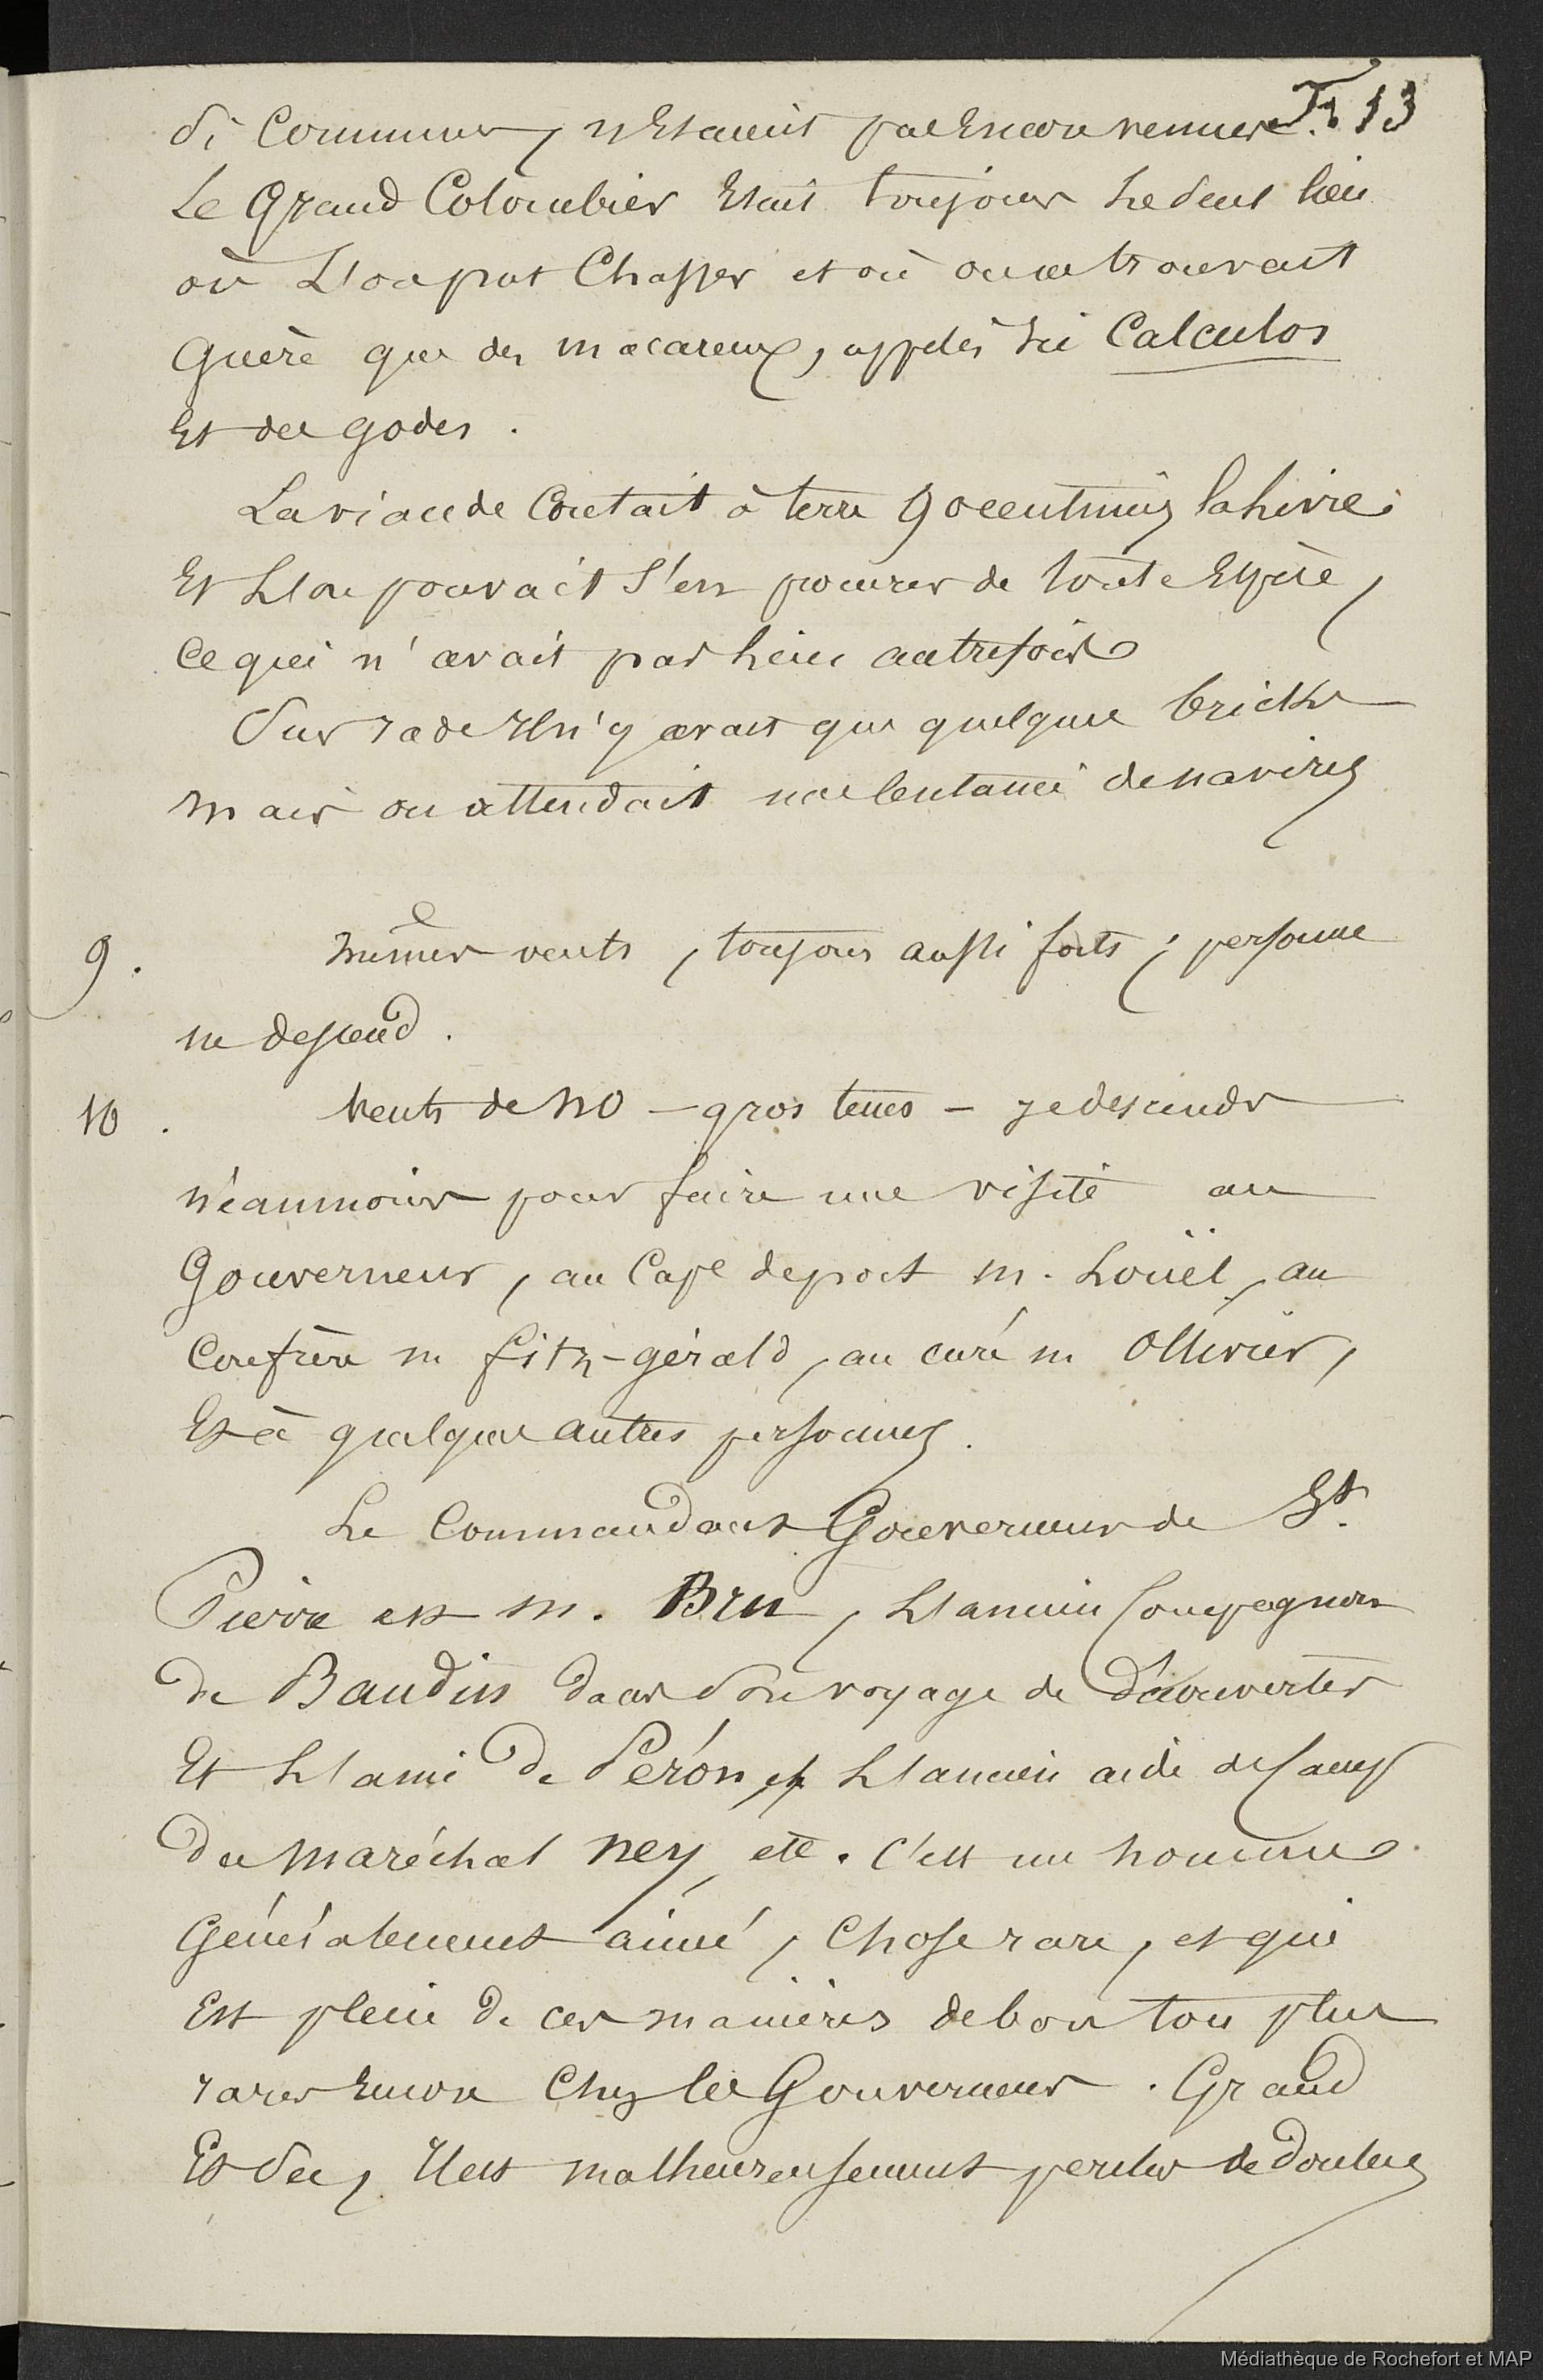 F. 13
si communes, n'etaient pas encore venues.
Le Grand Colombier etait toujours le seul lieu
où l'on put chasser et où on ne trouvait
Guère que des macareux, appelés ici Calculos
et des godes.
La viande coutait à terre 90 centimes la livre;
Et l'on pouvait s'en procurer de toute espèce,
ce qui n'avait pas lieu autrefois
Sur rade il n'y avait que quelques bricks
mais on attendait une centaine de navires
9. mêmes vents, toujours aussi forts; personne
ne descend.
10. Vents de NO - gros tems - je descends
néanmoins pour faire une visite au
Gouverneur, au Cape de port m. Loüel, au
Confrère m fitz-gérald, au curé m Ollivier,
Et à quelques autres personnes.
Le Commandant Gouverneur de St.
Pierre est m. Bru, l'ancien Compagnon
de Baudin dans son voyage de Découvertes
Et l'ami de Perón, et l'ancien aide de Camp
du Maréchal Ney, etc. C'est un homme
Généralement aimé, chose rare, et qui
Est plein de ces manières de bon ton plus
rares encore chez les Gouverneurs. Grand
Et sec, il est malheureusement perclus de douleurs
Médiathèque de Rochefort et MAP